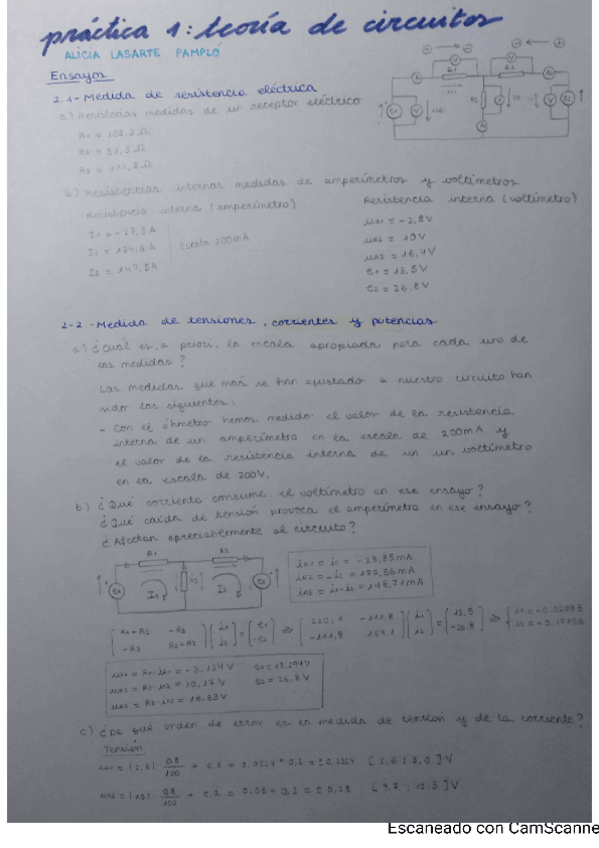 práctica 1: teoría de circuitos
ALICIA LASARTE PAMPLÓ
Ensayos
2.1- Medida de resistencia eléctrica
a) Resistencias medidas de un receptor eléctrico
R1 = 108,3 Ω
R2 = 57,3 Ω
R3 = 111,8 Ω
b) Resistencias internas medidas de amperímetros y voltímetros
Resistencia interna (amperímetro)
I1 = -27,3 A
I2 = 174,6 A
I3 = 147,8 A
Escala 200mA
Resistencia interna (voltímetro)
UR1 = -2,8 V
UR2 = 10 V
UR3 = 16,4 V
E1 = 13,5 V
E2 = 26.8 V
2-2 - Medida de tensiones, corrientes y potencias.
a) ¿Cuál es, a priori, la escala apropiada para cada uno de
las medidas?
Las medidas que más se han ajustado a nuestro circuito han
sido las siguientes:
- Con el óhmetro hemos medido el valor de la resistencia
interna de un amperímetro en la escala de 200mA y
el valor de la resistencia interna de un un voltímetro
en la escala de 200V.
b) ¿Qué corriente consume el voltímetro en ese ensayo?
¿Qué caída de tensión provoca el amperímetro en ese ensayo?
¿Afectan apreciablemente al circuito?
R1 R2
E1 I1 R3 I2 E2
iR1 = i1 = -28,85 mA
iR2 = -i2 = 177,56 mA
iR3 = i1-i2 = 148,71 mA
(R1+R3 -R3 -R3 R2+R3) (i1 i2) = (E1 -E2) ⇒ (220,1 -111,8 -111,8 169,1) (i1 i2) = (13,5 -26,8) ⇒
UR1 = R1·i1 = -3,124 V
UR2 = R2·i2 = 10,17 V E2 = 26,8 V
UR3 = R3·i3 = 16.63 V
c) ¿De qué orden de error es en medida de tensión y de la corriente?
Tensión
UR1 = |2,8| 0,8/100 + 0,2 = 0.0224 + 0,2 = ± 0,2224
UR2 = |10| 0,8/100 + 0,2 = 0.08 + 0,2 = ± 0,28
Escaneado con CamScanne